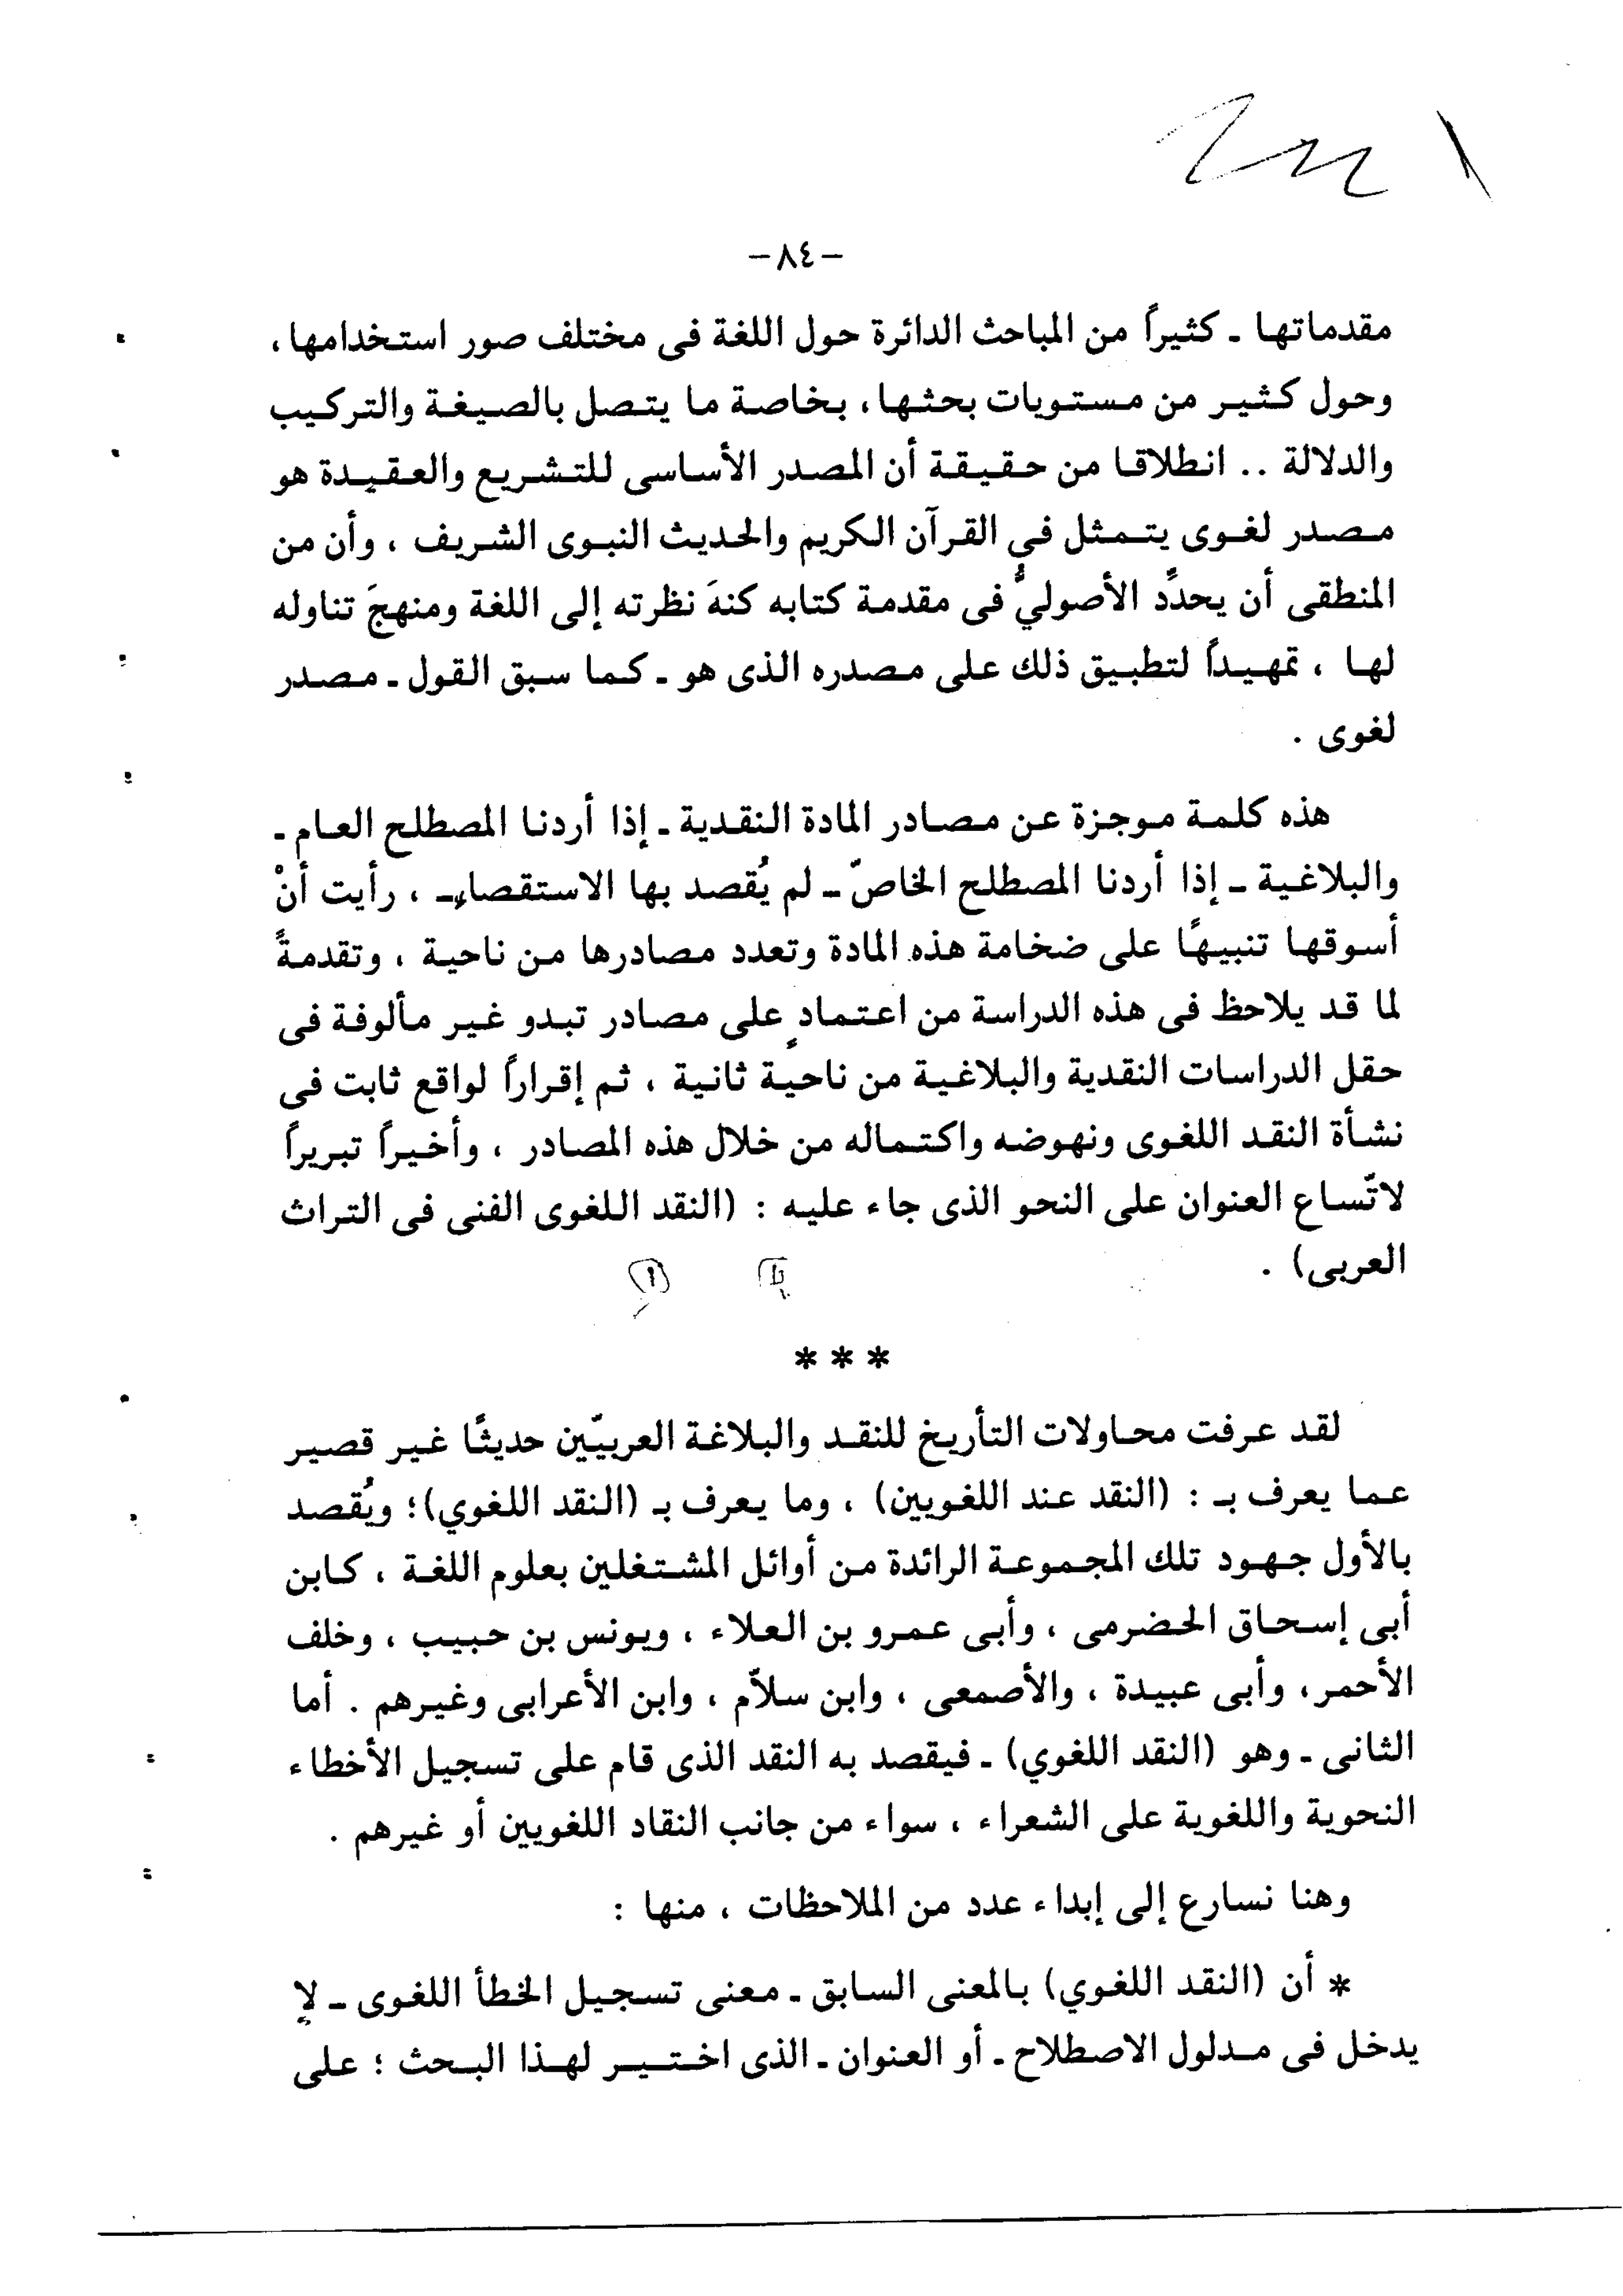 -٨٤-
مقدماتها ـ كثيراً من المباحث الدائرة حول اللغة فى مختلف صور استخدامها،
وحول كثير من مستويات بحثها، بخاصة ما يتصل بالصيغة والتركيب
والدلالة .. انطلاقا من حقيقة أن المصدر الأساسى للتشريع والعقيدة هو
مصدر لغوى يتمثل في القرآن الكريم والحديث النبوى الشريف ، وأن من
المنطقى أن يحدِّد الأصوليُّ فى مقدمة كتابه كنهَ نظرته إلى اللغة ومنهجَ تناوله
لها ، تمهيداً لتطبيق ذلك على مصدره الذى هو ـ كما سبق القول ـ مصدر
لغوى .
هذه كلمة موجزة عن مصادر المادة النقدية ـ إذا أردنا المصطلح العام ـ
والبلاغية ـ إذا أردنا المصطلح الخاصّ ـ لم يُقصد بها الاستقصاء ـ ، رأيت أنْ
أسوقها تنبيهًا على ضخامة هذه المادة وتعدد مصادرها من ناحية ، وتقدمةً
لما قد يلاحظ فى هذه الدراسة من اعتمادٍ على مصادر تبدو غير مألوفة فى
حقل الدراسات النقدية والبلاغية من ناحية ثانية ، ثم إقراراً لواقع ثابت فى
نشأة النقد اللغوى ونهوضه واكتماله من خلال هذه المصادر ، وأخيراً تبريراً
لاتّساع العنوان على النحو الذى جاء عليه : (النقد اللغوى الفنى فى التراث
العربى) .
* * *
لقد عرفت محاولات التأريخ للنقد والبلاغة العربيّين حديثًا غير قصير
عما يعرف بـ : (النقد عند اللغويين) ، وما يعرف بـ (النقد اللغوي)؛ ويُقصد
بالأول جهود تلك المجموعة الرائدة من أوائل المشتغلين بعلوم اللغة ، كابن
أبى إسحاق الحضرمى ، وأبى عمرو بن العلاء ، ويونس بن حبيب ، وخلف
الأحمر، وأبى عبيدة ، والأصمعى ، وابن سلاّم ، وابن الأعرابى وغيرهم . أما
الثانى ـ وهو (النقد اللغوي) ـ فيقصد به النقد الذى قام على تسجيل الأخطاء
النحوية واللغوية على الشعراء ، سواء من جانب النقاد اللغويين أو غيرهم .
وهنا نسارع إلى إبداء عدد من الملاحظات ، منها :
* أن (النقد اللغوي) بالمعنى السابق ـ معنى تسجيل الخطأ اللغوى ـ لا
يدخل فى مدلول الاصطلاح ـ أو العنوان ـ الذى اختير لهذا البحث ؛ على